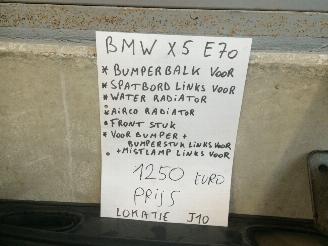 BMW X5 E70
* BUMPERBALK VOOR
* SPATBORD LINKS VOOR
* WATER RADIATOR
* AIRCO RADIATOR
* FRONT STUK
* VOOR BUMPER +
BUMPERSTUK LINKS VOOR
+ MISTLAMP LINKS VOOR
1250 EURO
PRIJS
LOKATIE J10